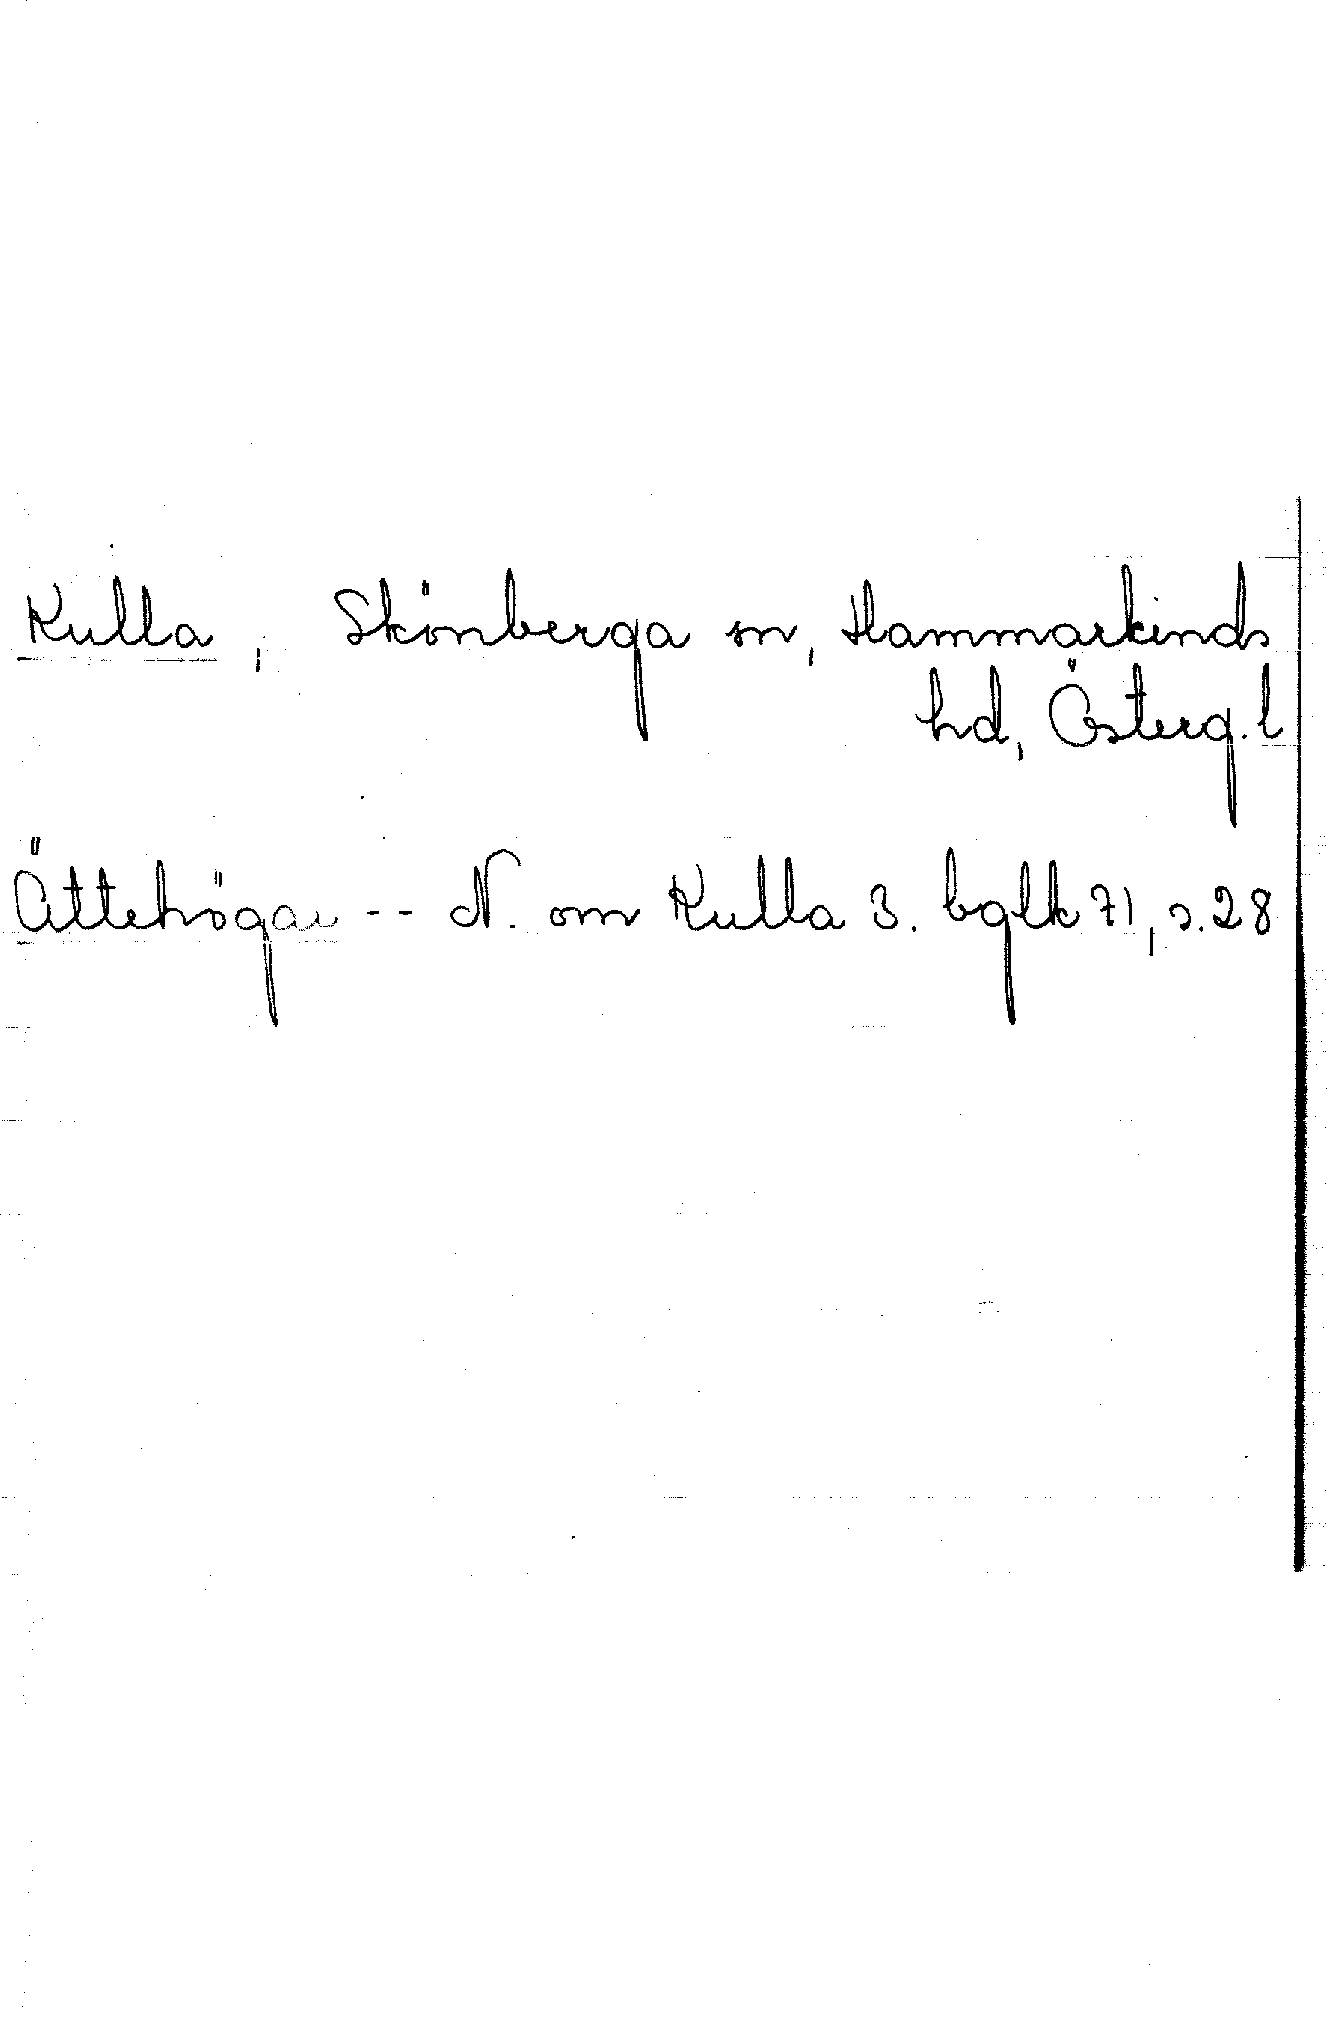 Kulla, Skönberga sn, Hammarkinds
hd, Österg. l
Ättehögar -- N. om Kulla 3. bglk 71, s. 28